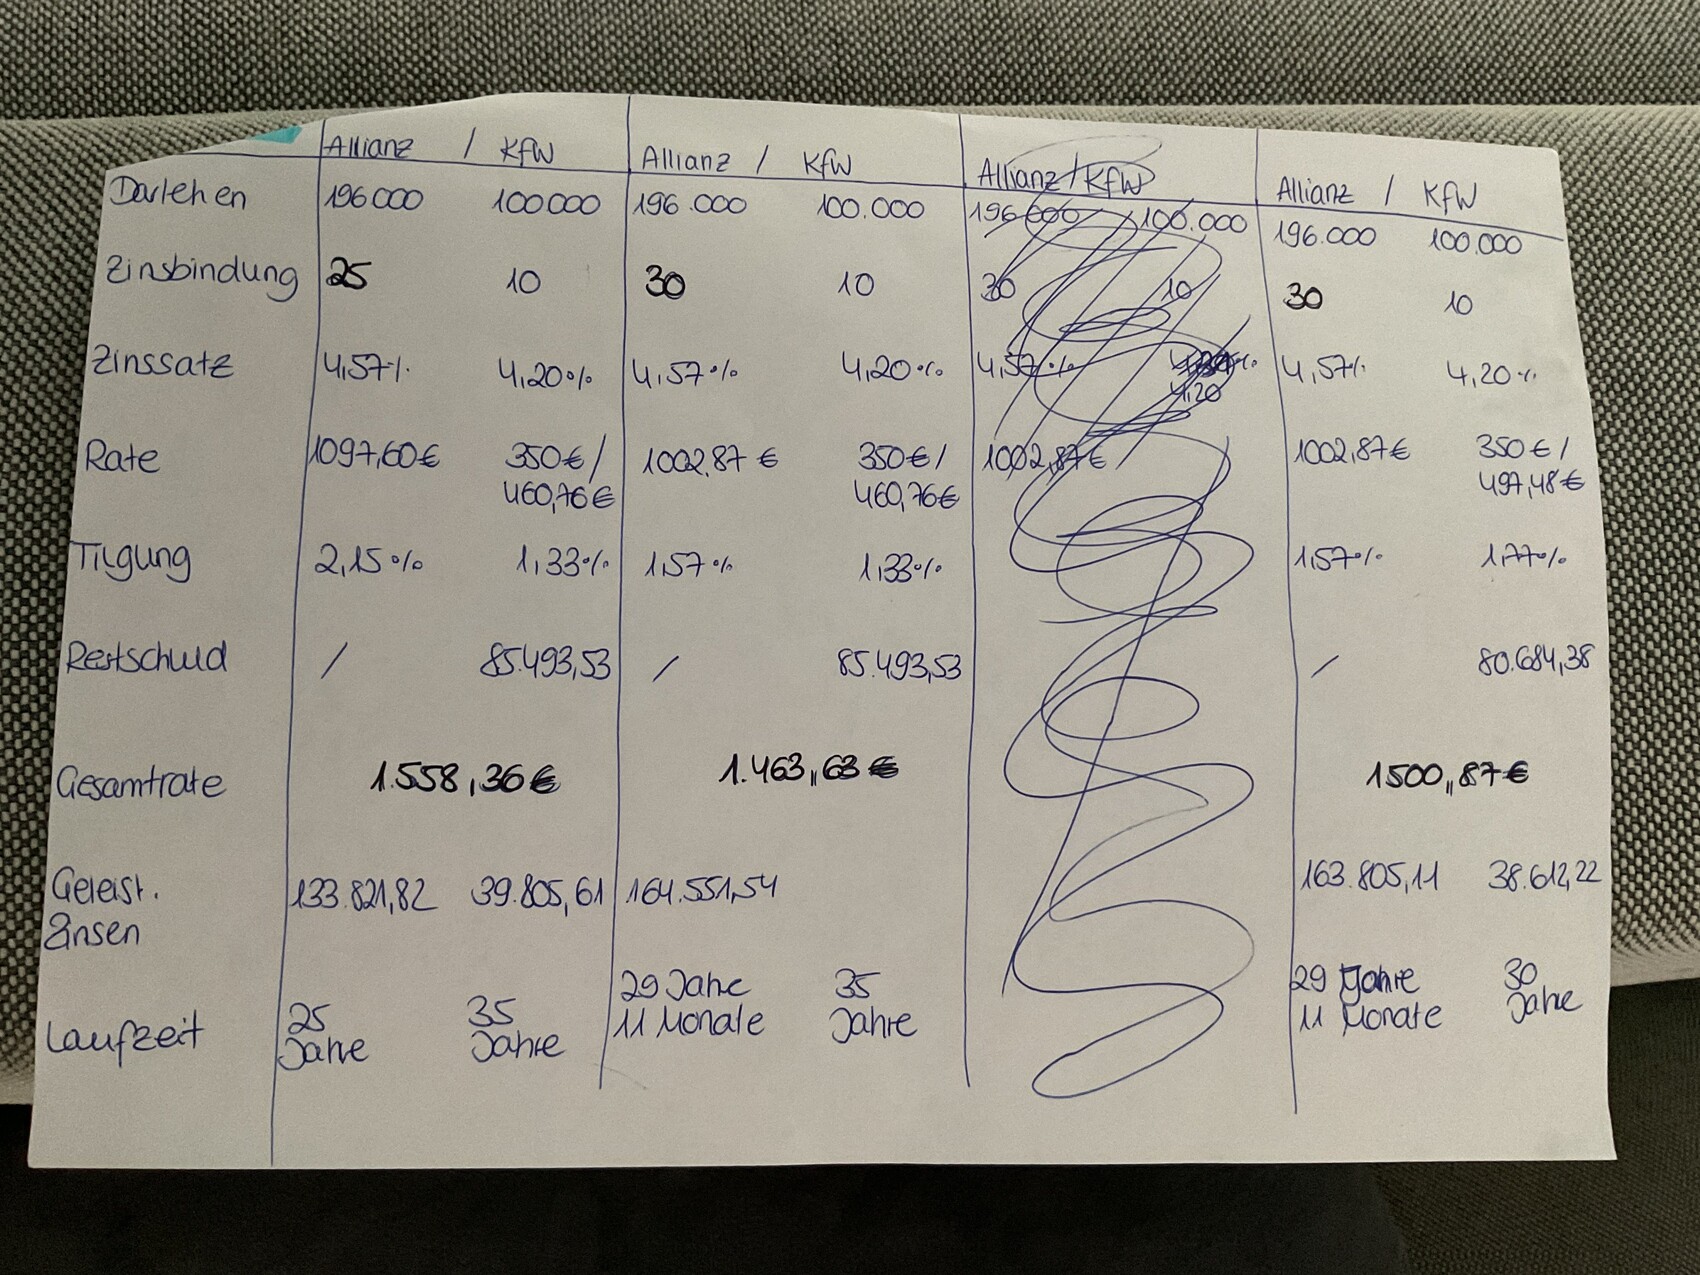 Allianz / KfW Allianz / KfW Allianz / KfW Allianz / KfW
Darlehen 196000 100000 196.000 100.000 196.000 100.000 196.000 100.000
Zinsbindung 25 10 30 10 30 10 30 10
Zinssatz 4,57% 4,20% 4,57% 4,20% 4,57% 4,57% 4,20%
4,20
Rate 1097,60€ 350€/ 1002,87€ 350€/ 1002,87€ 1002,87€ 350€/
460,76€ 460,76€ 497,48€
Tilgung 2,15% 1,33% 1,57% 1,33% 1,57% 1,77%
Restschuld / 85.493,53 / 85.493,53 / 80.684,38
Gesamtrate 1.558,36€ 1.463,,63€ 1500,,87€
Geleist. 133.821,82 39.805,61 164.551,54 163.805,11 38.612,22
Zinsen
Laufzeit 25 35 29 Jahre 35 29 Jahre 30
Jahre Jahre 11 Monate Jahre 11 Monate Jahre